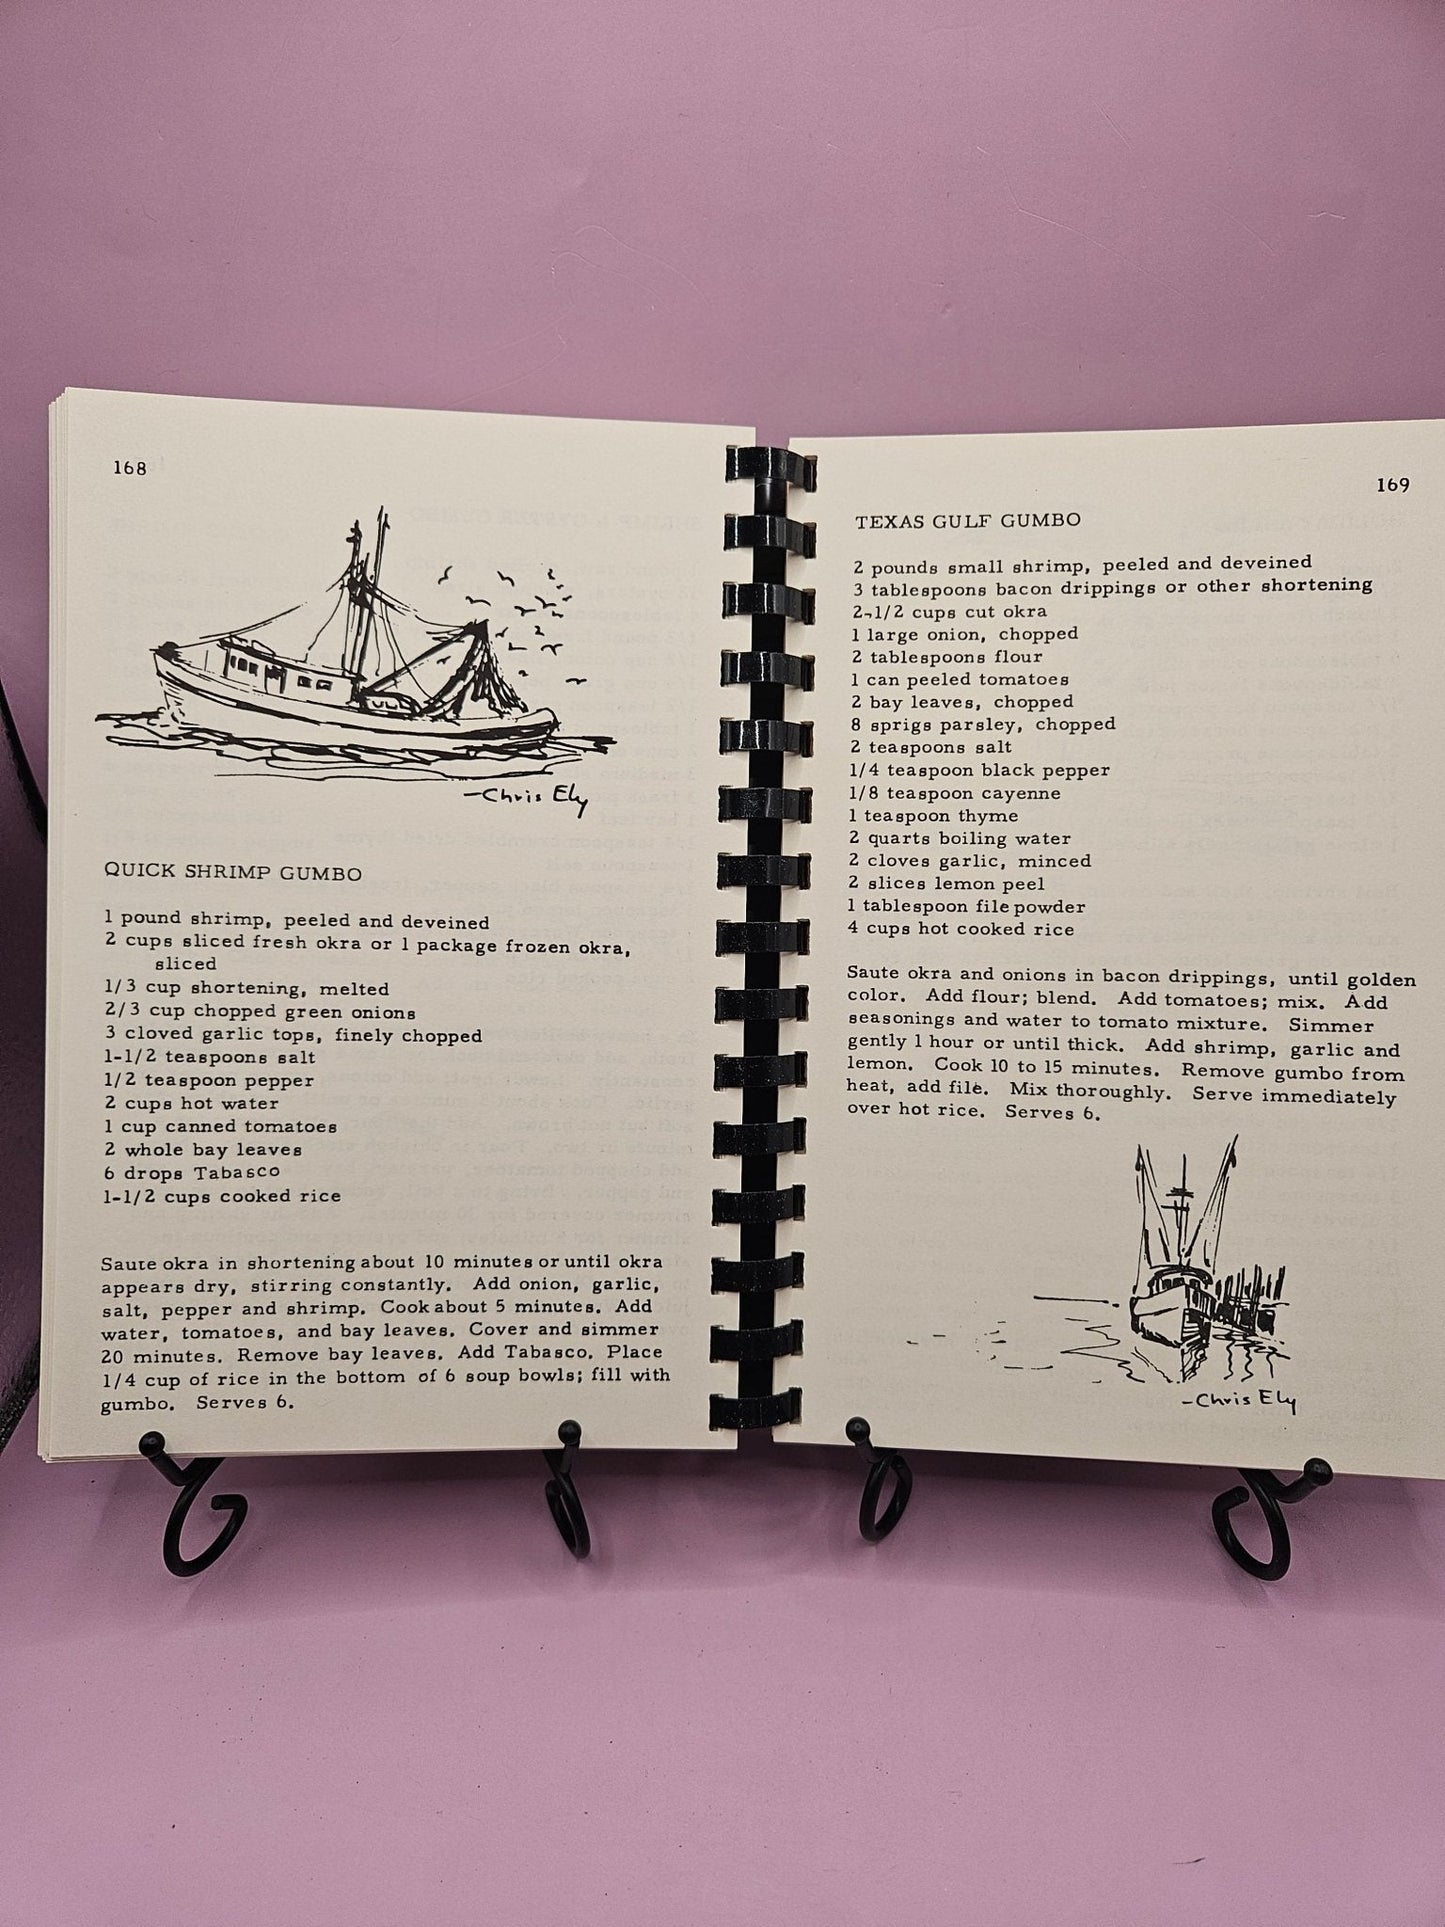 168
-Chris Ely
QUICK SHRIMP GUMBO
1 pound shrimp, peeled and deveined
2 cups sliced fresh okra or 1 package frozen okra,
sliced
1/3 cup shortening, melted
2/3 cup chopped green onions
3 cloved garlic tops, finely chopped
1-1/2 teaspoons salt
1/2 teaspoon pepper
2 cups hot water
1 cup canned tomatoes
2 whole bay leaves
6 drops Tabasco
1-1/2 cups cooked rice
Saute okra in shortening about 10 minutes or until okra
appears dry, stirring constantly. Add onion, garlic,
salt, pepper and shrimp. Cook about 5 minutes. Add
water, tomatoes, and bay leaves. Cover and simmer
20 minutes. Remove bay leaves. Add Tabasco. Place
1/4 cup of rice in the bottom of 6 soup bowls; fill with
gumbo. Serves 6.
169
TEXAS GULF GUMBO
2 pounds small shrimp, peeled and deveined
3 tablespoons bacon drippings or other shortening
2-1/2 cups cut okra
1 large onion, chopped
2 tablespoons flour
1 can peeled tomatoes
2 bay leaves, chopped
8 sprigs parsley, chopped
2 teaspoons salt
1/4 teaspoon black pepper
1/8 teaspoon cayenne
1 teaspoon thyme
2 quarts boiling water
2 cloves garlic, minced
2 slices lemon peel
1 tablespoon file powder
4 cups hot cooked rice
Saute okra and onions in bacon drippings, until golden
color. Add flour; blend. Add tomatoes; mix. Add
seasonings and water to tomato mixture. Simmer
gently 1 hour or until thick. Add shrimp, garlic and
lemon. Cook 10 to 15 minutes. Remove gumbo from
heat, add filè. Mix thoroughly. Serve immediately
over hot rice. Serves 6.
-Chris Ely